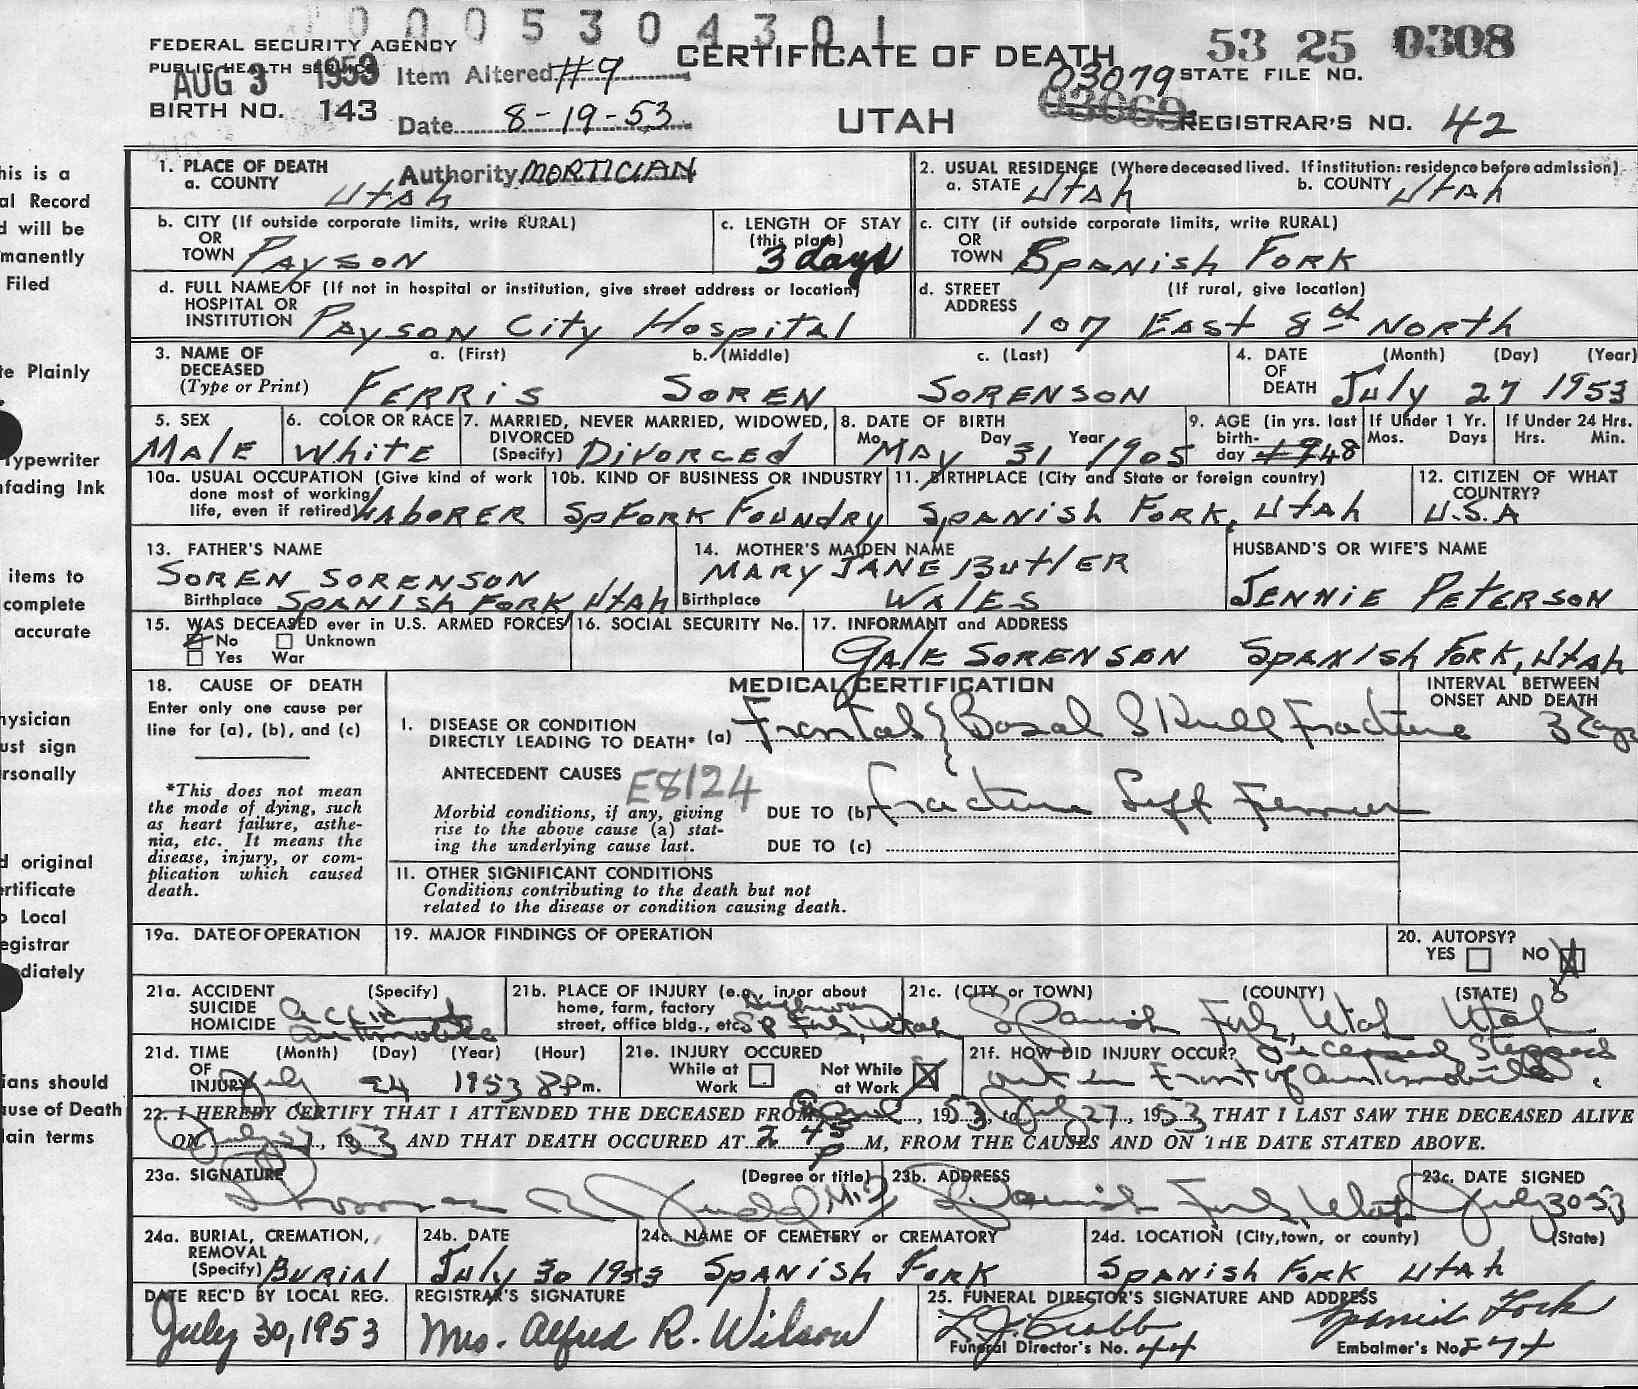 0005304301
FEDERAL SECURITY AGENCY
PUBLIC HEALTH SERVICE
AUG 3 1953
Item Altered #9
CERTIFICATE OF DEATH
53 25 0308
03079 STATE FILE NO.
BIRTH NO. 143
Date 8-19-53
UTAH
03069
REGISTRAR'S NO. 42
Authority MORTICIAN
1. PLACE OF DEATH
a. COUNTY Utah
2. USUAL RESIDENCE (Where deceased lived. If institution: residence before admission)
a. STATE Utah b. COUNTY Utah
b. CITY (If outside corporate limits, write RURAL)
OR
TOWN Payson
c. LENGTH OF STAY
(this place)
3 days
c. CITY (if outside corporate limits, write RURAL)
OR
TOWN Spanish Fork
d. FULL NAME OF (If not in hospital or institution, give street address or location)
HOSPITAL OR
INSTITUTION Payson City Hospital
d. STREET (If rural, give location)
ADDRESS
107 East 8th North
3. NAME OF DECEASED
(Type or Print)
a. (First) b. (Middle) c. (Last)
FERRIS SOREN SORENSON
4. DATE OF DEATH
(Month) (Day) (Year)
July 27 1953
5. SEX
MALE
6. COLOR OR RACE
White
7. MARRIED, NEVER MARRIED, WIDOWED,
DIVORCED
(Specify) Divorced
8. DATE OF BIRTH
Mo. Day Year
MAY 31 1905
9. AGE (in yrs. last
birth-
day 48
If Under 1 Yr.
Mos. Days
If Under 24 Hrs.
Hrs. Min.
10a. USUAL OCCUPATION (Give kind of work
done most of working
life, even if retired) LABORER
10b. KIND OF BUSINESS OR INDUSTRY
Sp Fork Foundry
11. BIRTHPLACE (City and State or foreign country)
Spanish Fork, Utah
12. CITIZEN OF WHAT
COUNTRY?
U.S.A
13. FATHER'S NAME
SOREN SORENSON
Birthplace SPANISH FORK, Utah
14. MOTHER'S MAIDEN NAME
MARY JANE BUTLER
Birthplace WALES
HUSBAND'S OR WIFE'S NAME
JENNIE PETERSON
15. WAS DECEASED ever in U.S. ARMED FORCES
No Unknown
Yes War
16. SOCIAL SECURITY No.
17. INFORMANT and ADDRESS
GALE SORENSON SPANISH FORK, Utah
18. CAUSE OF DEATH
Enter only one cause per
line for (a), (b), and (c)
*This does not mean
the mode of dying, such
as heart failure, asthe-
nia, etc. It means the
disease, injury, or com-
plication which caused
death.
MEDICAL CERTIFICATION
INTERVAL BETWEEN
ONSET AND DEATH
I. DISEASE OR CONDITION
DIRECTLY LEADING TO DEATH* (a) Frontal & Basal Skull Fracture 3 days
ANTECEDENT CAUSES E8124
Morbid conditions, if any, giving
rise to the above cause (a) stat-
ing the underlying cause last.
DUE TO (b) fracture Left Femur
DUE TO (c)
II. OTHER SIGNIFICANT CONDITIONS
Conditions contributing to the death but not
related to the disease or condition causing death.
19a. DATE OF OPERATION
19. MAJOR FINDINGS OF OPERATION
20. AUTOPSY?
YES NO X
21a. ACCIDENT (Specify)
SUICIDE
HOMICIDE
accident
automobile
21b. PLACE OF INJURY (e.g., in or about
home, farm, factory
street, office bldg., etc.)
Highway
Sp Fork, Utah
21c. (CITY or TOWN) (COUNTY) (STATE)
Spanish Fork, Utah Utah
21d. TIME OF INJURY
(Month) (Day) (Year) (Hour)
July 24 1953 8 Pm.
21e. INJURY OCCURED
While at Work
Not While at Work X
21f. HOW DID INJURY OCCUR? Deceased Stepped
out in Front of automobile.
22. I HEREBY CERTIFY THAT I ATTENDED THE DECEASED FROM 1953, to July 27, 1953 THAT I LAST SAW THE DECEASED ALIVE
ON July 27, 1953 AND THAT DEATH OCCURED AT 2 45 P M, FROM THE CAUSES AND ON THE DATE STATED ABOVE.
23a. SIGNATURE (Degree or title)
Judd M.D
23b. ADDRESS
Spanish Fork, Utah
23c. DATE SIGNED
July 30 53
24a. BURIAL, CREMATION,
REMOVAL
(Specify) BURIAL
24b. DATE
July 30 1953
24c. NAME OF CEMETERY or CREMATORY
SPANISH FORK
24d. LOCATION (City, town, or county) (State)
SPANISH FORK Utah
DATE REC'D BY LOCAL REG.
July 30, 1953
REGISTRAR'S SIGNATURE
Mrs. Alfred R. Wilson
25. FUNERAL DIRECTOR'S SIGNATURE AND ADDRESS
Spanish Fork
Funeral Director's No. 44
Embalmer's No.
his is a
al Record
d will be
manently
Filed
te Plainly
Typewriter
nfading Ink
items to
complete
accurate
hysician
ust sign
rsonally
d original
ertificate
o Local
egistrar
diately
ians should
ause of Death
lain terms